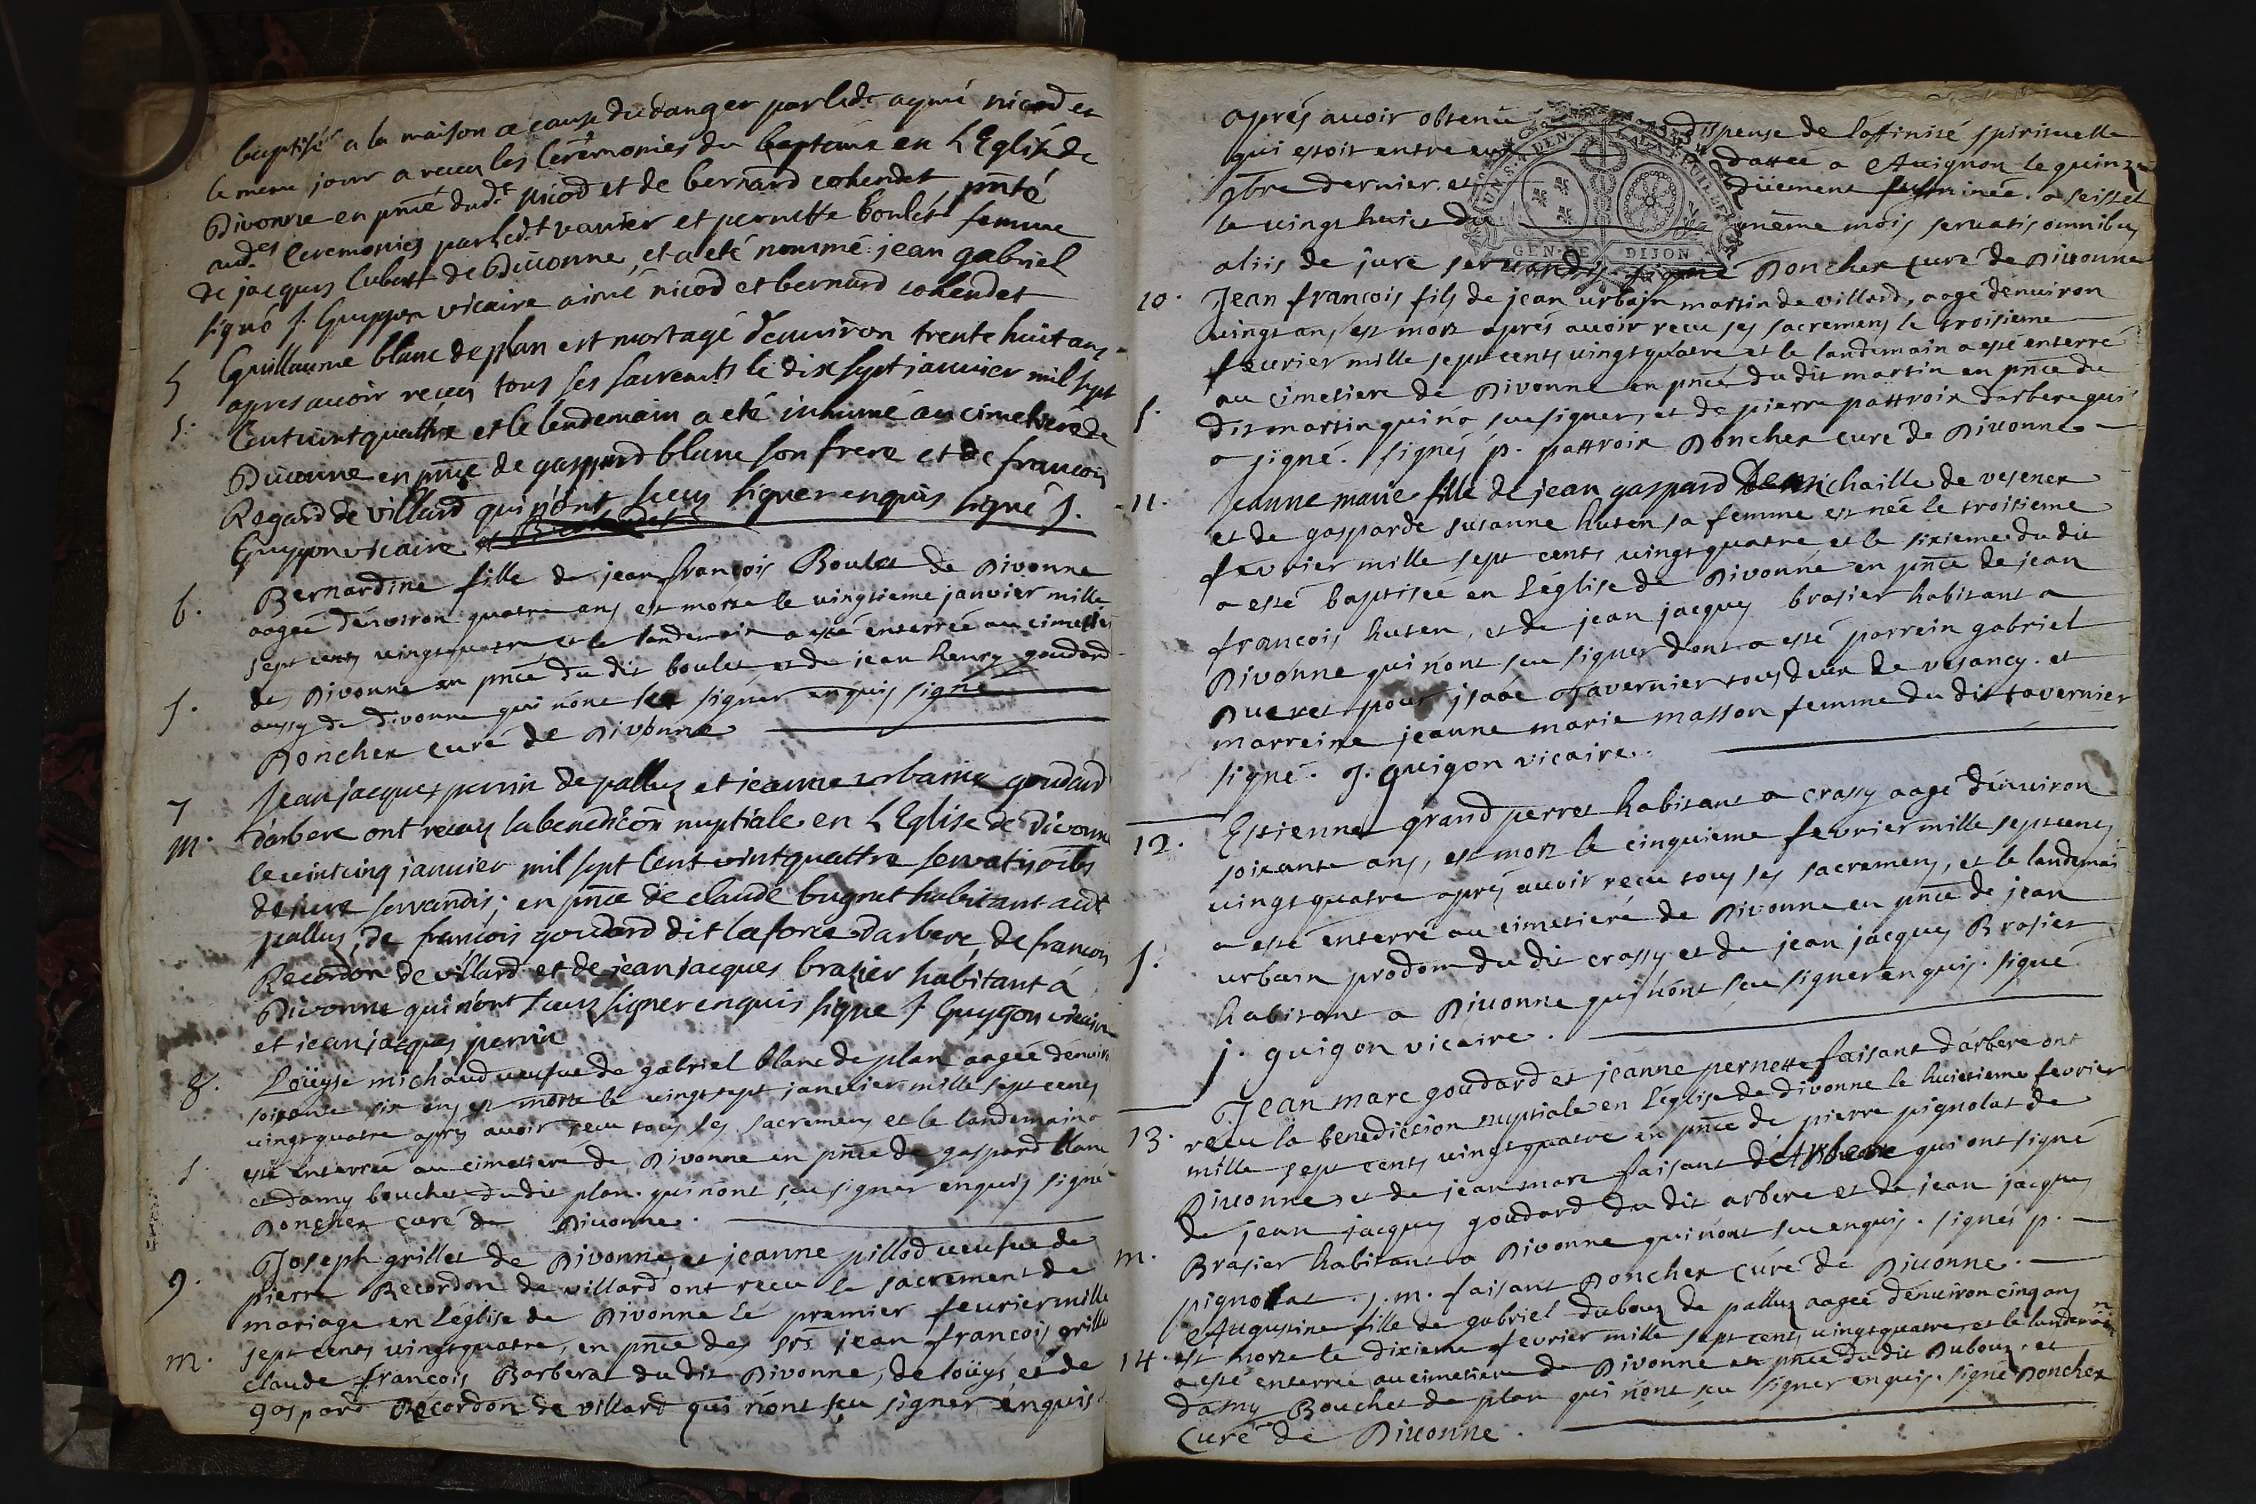 baptisé a la maison a cause du danger par led.t aymé nicod et
le meme jour a receu les Cérémonies du baptême en L'Eglise de
Divonne en pnce dud.t nicod et de bernard cohendet, pnté
aud.es Ceremonies par led.t vanier et pernette boulet femme
de jacques Cubert de Divonne, et a eté nommé jean gabriel
signé J. Guygon vicaire aimé nicod et bernard cohendet
5 Guillaume blanc de plan est mort agé d'environ trente huit ans
apres avoir receu tous ses sacrements le dix sept janvier mil sept
s. Cent vint quattre et le lendemain a eté inhumé au cimetiere de
Divonne en pnce de gaspard blanc son frere et de francois
Regard de villard qui n'ont sceu signer enquis signé J.
Guygon vicaire
6. Bernardine fille de jean françois Boulet de Divonne
aagée d'environ quatre ans est morte le vingtieme janvier mille
sept cents vingt quatre et le landemain a esté enterrée au cimetiere
de Divonne en pnce du dit boulet et de jean henry goudard
s. aussy de divonne qui n'ont sceu signer enquis signé
Poncher curé de Divonne
7 Jean jacques perrin de palluz et jeanne urbaine goudard
m. d'arbere ont receu la benediction nuptiale en L'Eglise de Divonne
le vint cinq janvier mil sept Cent vint quattre servatis oibs
de jure servandis; en pnce de claude bugnet habitant aud.t
palluz, de francois goudard dit laforce d'arbere, de francois
Recordon de villard et de jean jacques brazier habitant à
Divonne qui n'ont sceu signer enquis signé J Guygon vicaire
et jean jacques perrin
8. Loüyse michaud veufve de gabriel blanc de plan aagée d'environ
soixante six ans est morte le vingt sept janvier mille sept cents
vingt quatre apres avoir receu tous ses sacremens et le landemain a
s. esté enterrée au cimetiere de Divonne en pnce de gaspard blanc
et d'amy bouchet du dit plan. qui n'ont sceu signer enquis signé
Poncher curé de Divonne.
9. Joseph grillet de Divonne et jeanne pillod veufve de
pierre Recordon de villard ont receu le sacrement de
mariage en L'église de Divonne le premier fevrier mille
sept cents vingt quatre, en pnce des srs jean françois grillet
m. claude françois Barberat du dit Divonne, de loüys et de
gaspard Recordon de villard qui n'ont sceu signer enquis
après avoir obtenu dispense de l'affinité spirituelle
qui estoit entre eux dattée a Avignon le quinze
9bre dernier et düement fulminée a seissel
le vingt huict du même mois servatis omnibus
aliis de jure servandis signé Poncher curé de Divonne
GEN. DE DIJON
10. Jean françois fils de jean urbain martin de villard, aagé d'environ
vingt ans est mort après avoir receu ses sacremens le troisieme
fevrier mille sept cents vingt quatre et le landemain a esté enterré
au cimetiere de Divonne en pnce du dit martin en pnce du
s. dit martin qui n'a sceu signer, et de pierre pattroix d'arbere qui
a signé. signés p. pattroix Poncher curé de Divonne
11. Jeanne marie fille de jean gaspard chaille de vesenex
et de gasparde susanne huten sa femme est née le troisieme
fevrier mille sept cents vingt quatre et le sixieme du dit
a esté baptisée en L'église de Divonne en pnce de jean
francois huten, et de jean jacques brasier habitant a
Divonne qui n'ont sceu signer dont a esté parrein gabriel
Dueret pour isaac Tavernier tous deux de vesancy. et
marreine jeanne marie masson femme du dit tavernier
signé. J. guigon vicaire.
12. Estienne grand perret habitant a crassy aagé d'environ
soixante ans, est mort le cinquieme fevrier mille sept cents
vingt quatre après avoir receu tous ses sacremens, et le landemain
a esté enterré au cimetiere de Divonne en pnce de jean
s. urbain prodom du dit crassy et de jean jacques Brasier
habitant a Divonne qui n'ont sceu signer enquis. signé
j. guigon vicaire.
Jean marc goudard et jeanne pernette faisant d'arbere ont
13. receu la benediction nuptiale en L'église de divonne le huictieme fevrier
mille sept cents vingt quatre en pnce de pierre pignolat de
Divonne et de jean marc faisant d'Arbere qui ont signé
de jean jacques goudard du dit arbere et de jean jacques
m. Brasier habitant a Divonne qui n'ont sceu enquis. signés p.
pignolat. j. m. faisant Poncher curé de Divonne.
Augustine fille de gabriel dubouz de palluz aagée d'environ cinq ans
14. est morte le dixieme fevrier mille sept cents vingt quatre, et le landemain
a esté enterrée au cimetiere de Divonne en pnce du dit Dubouz. et
d'amy Bouchet de plan qui n'ont sceu signer enquis. signé Poncher
curé de Divonne.